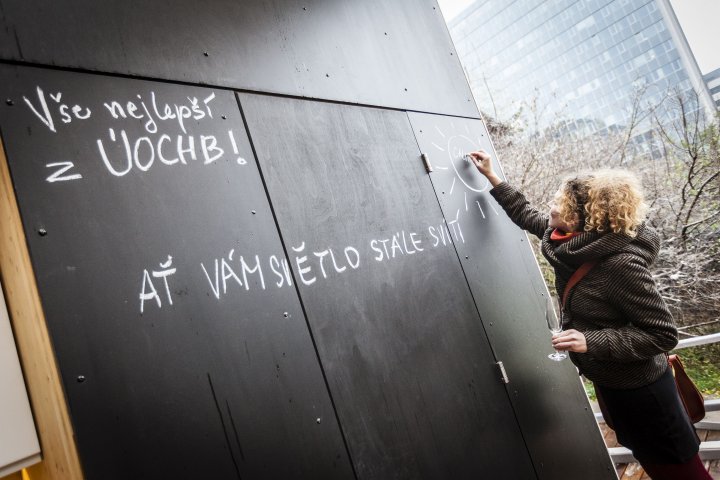 Vše nejlepší
z ÚOCHB!
AŤ VÁM SVĚTLO STÁLE SVÍTÍ